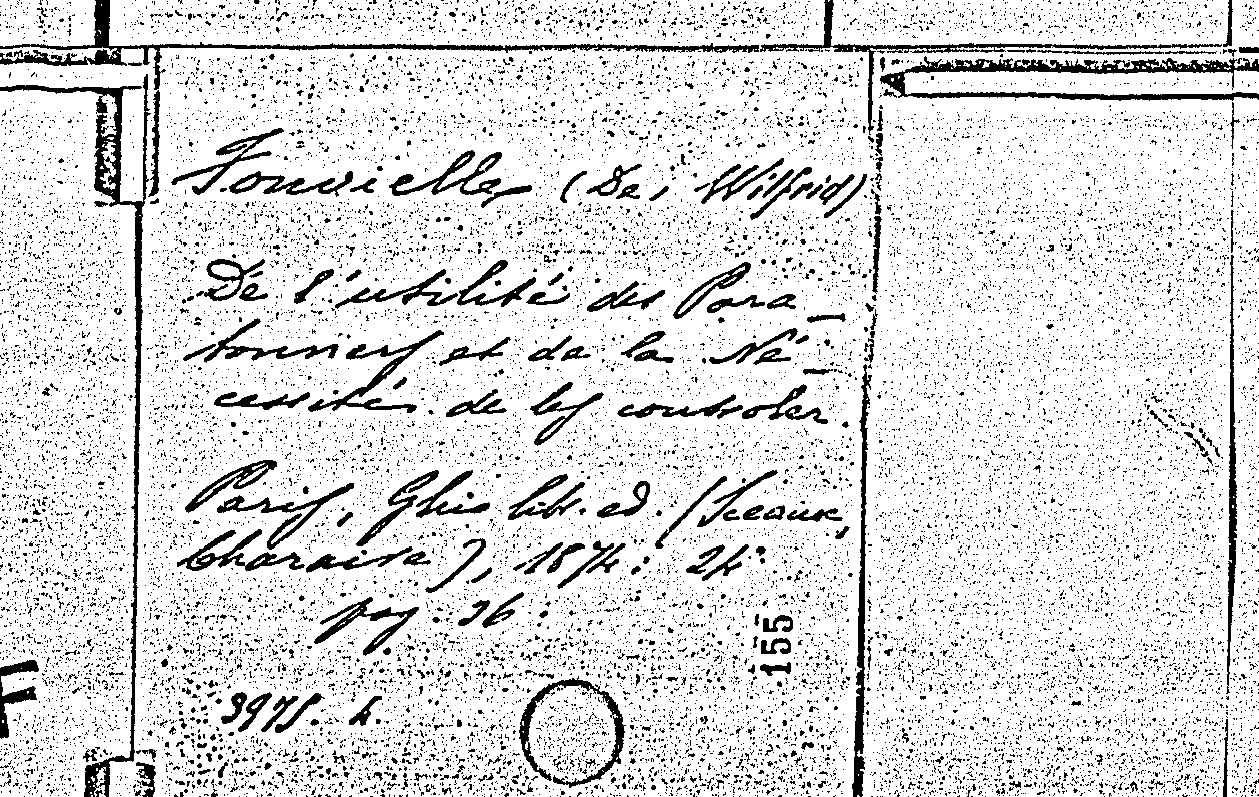 Fonvielle (De, Wilfrid)
De l'utilité des Para_
tonners et de la Né_
cessités de les controler.
Paris, Ghio lib. ed. (Sceaux,
Charaire), 1874: 24°
pag. 36.
3975. 4.
155
F